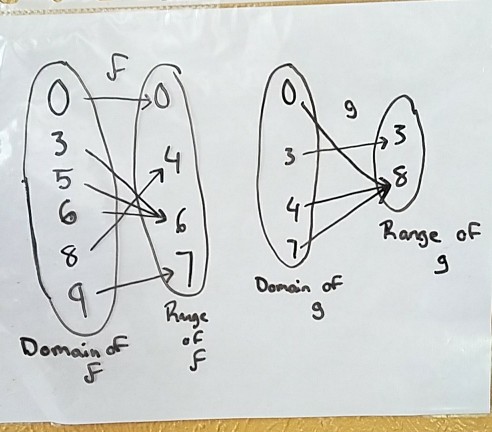 f
0
3
5
6
8
9
0
4
6
7
Domain of
f
Range
of
f
g
0
3
4
7
3
8
Domain of
g
Range of
g